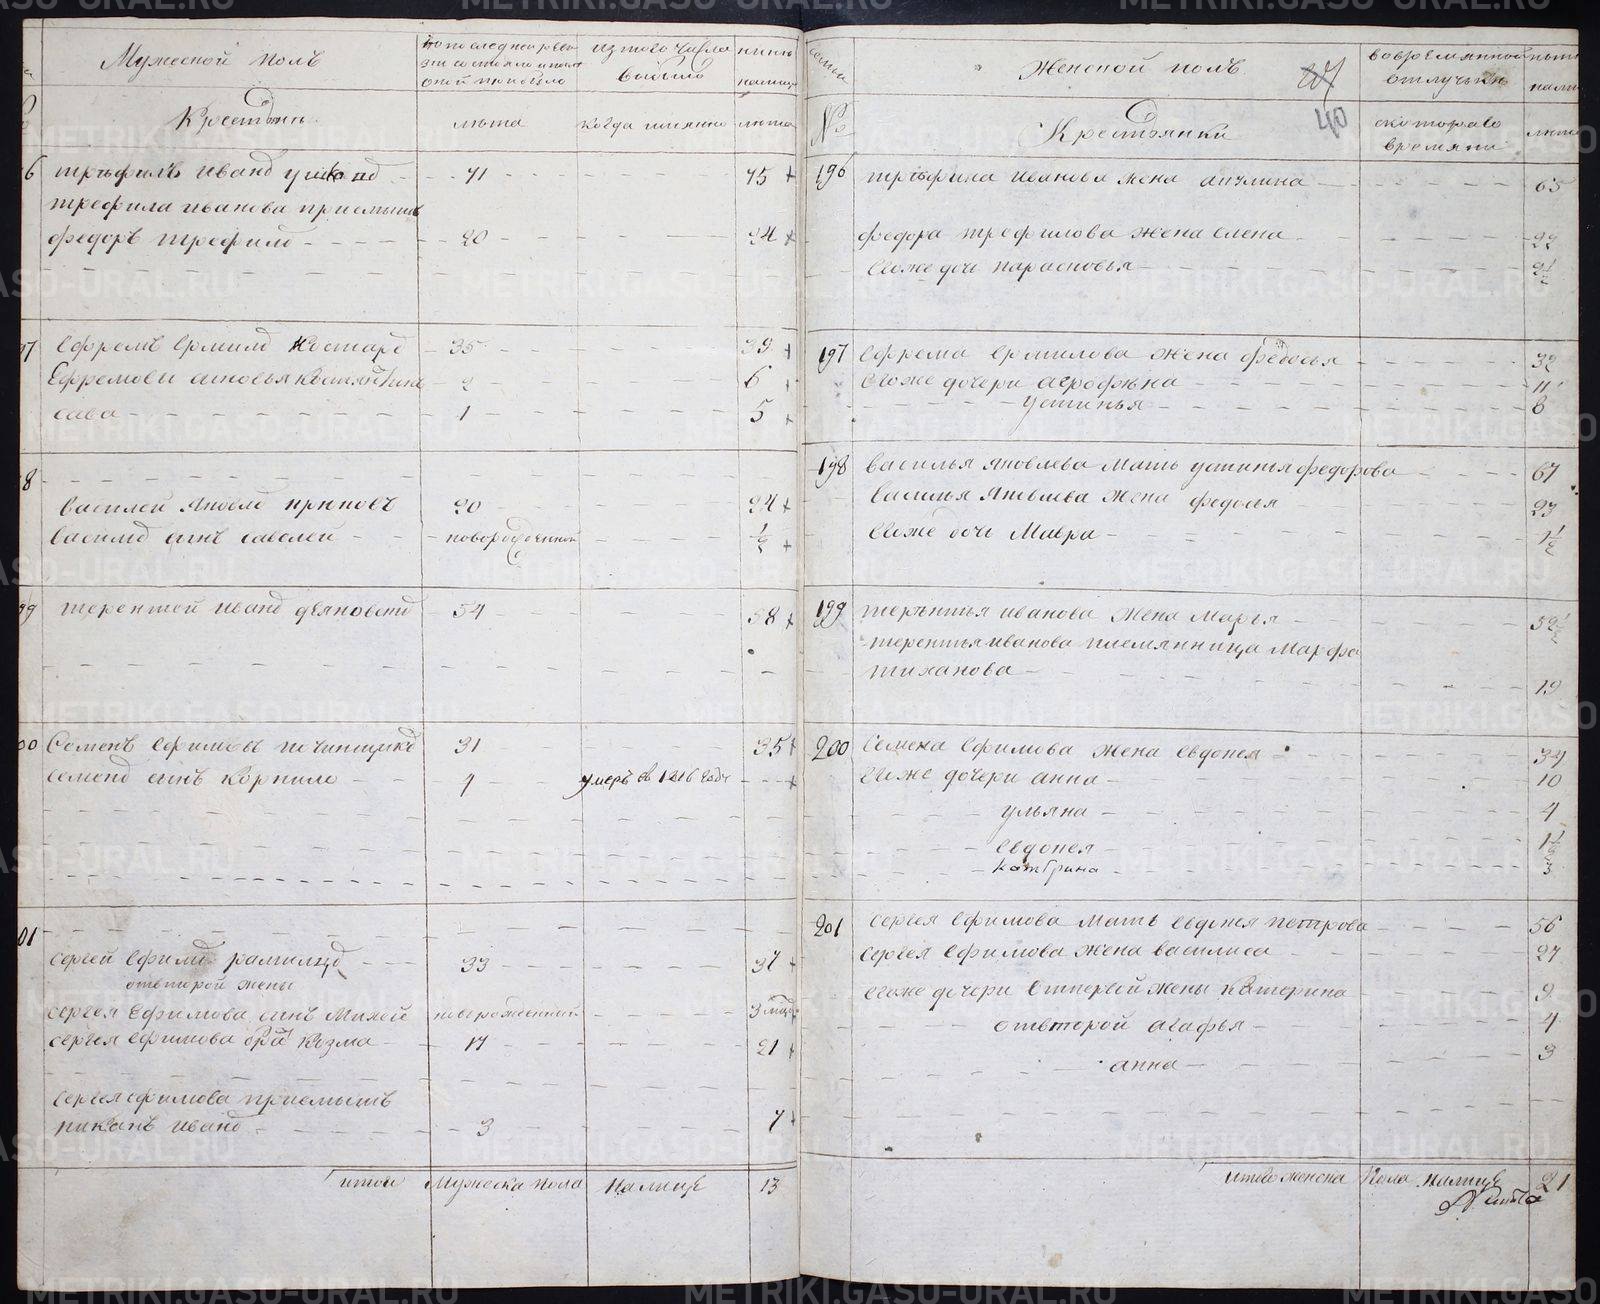 Мужеской полъ
по последней реви
зии состояло и после
оной прибыло
из того числа
выбыло
ныне
налицо
Крестьяне
лета
когда имянно
лета
6 трефилъ иванов 41 45
трефила иванова приемышъ
федоръ трефилов 20 24
97 ефремъ ермилов 35 39
Ефремовы сыновья костянтинъ 2 6
сава 1 5
8
василей яковлев 20 24
василев сынъ савелей новорожденной 1/2
99 терентей иванов 54 58
00 Семенъ ефимовъ 31 35
семенов сынъ корнило 4 умеръ в 1816 году
01
сергей ефимов 33 37
от второй жены
сергея ефимова сынъ михей новорожденной 3 мцов
сергея ефимова братъ козма 17 21
сергея ефимова приемышъ
иванов 3 7
итого мужеска пола налице 13
семьи
№
Женской полъ
40
во временной
отлучьке
ныне
нали
Крестьянки
с которого
времяни
лета
196 трефила иванова жена акулина 65
федора трефилова жена елена 22
его же дочь парасковья 2 1/2
197 ефрема ермилова жена федосья 32
его же дочери агрофена 11
устинья 8
198 василья яковлева мать устинья федорова 67
василья яковлева жена федосья 23
его же дочь мавра 1 1/2
199 терентья иванова жена марья 52 1/2
терентья иванова племянница марфа
тиханова 19
200 семена ефимова жена евдокея 34
его же дочери анна 10
ульяна 4
евдокея 1 1/2
катерина 3
201 сергея ефимова мать евдокея петрова 56
сергея ефимова жена василиса 27
его же дочери от первой жены катерина 9
от второй агафья 4
анна 3
итого женска пола налице 21
METRIKI.GASO-URAL.RU